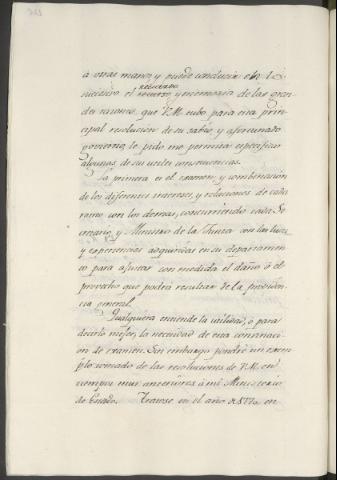 à otras manos, y puede conducir en lo
sucesivo el recuerdo
y memoria de las gran-
des razones que V.M. tubo para esta prin-
cipal resolucion de su sabio, y afortunado
govierno, le pido me permita especificar
algunas de sus utiles consecuencias.
La primera es el examen y combinacion
de los diferentes intereses, y relaciones de cada
ramo con los demas, concurriendo cada Se-
cretario, y Ministro de la Junta con las luces,
y experiencias adquiridas en su departamen-
to para ajustar con medida el daño ó el
provecho que podrá resultar de la providen-
cia general.
Qualquiera entiende la utilidad, ó para
decirlo mejor, la necesidad de esta convinaci-
on de examen. Sin embargo pondré un exem-
plo tomado de las resoluciones de V.M. en
tiempos muy anteriores á mi Ministerio
de Estado. Tratose en el año de 1770 en